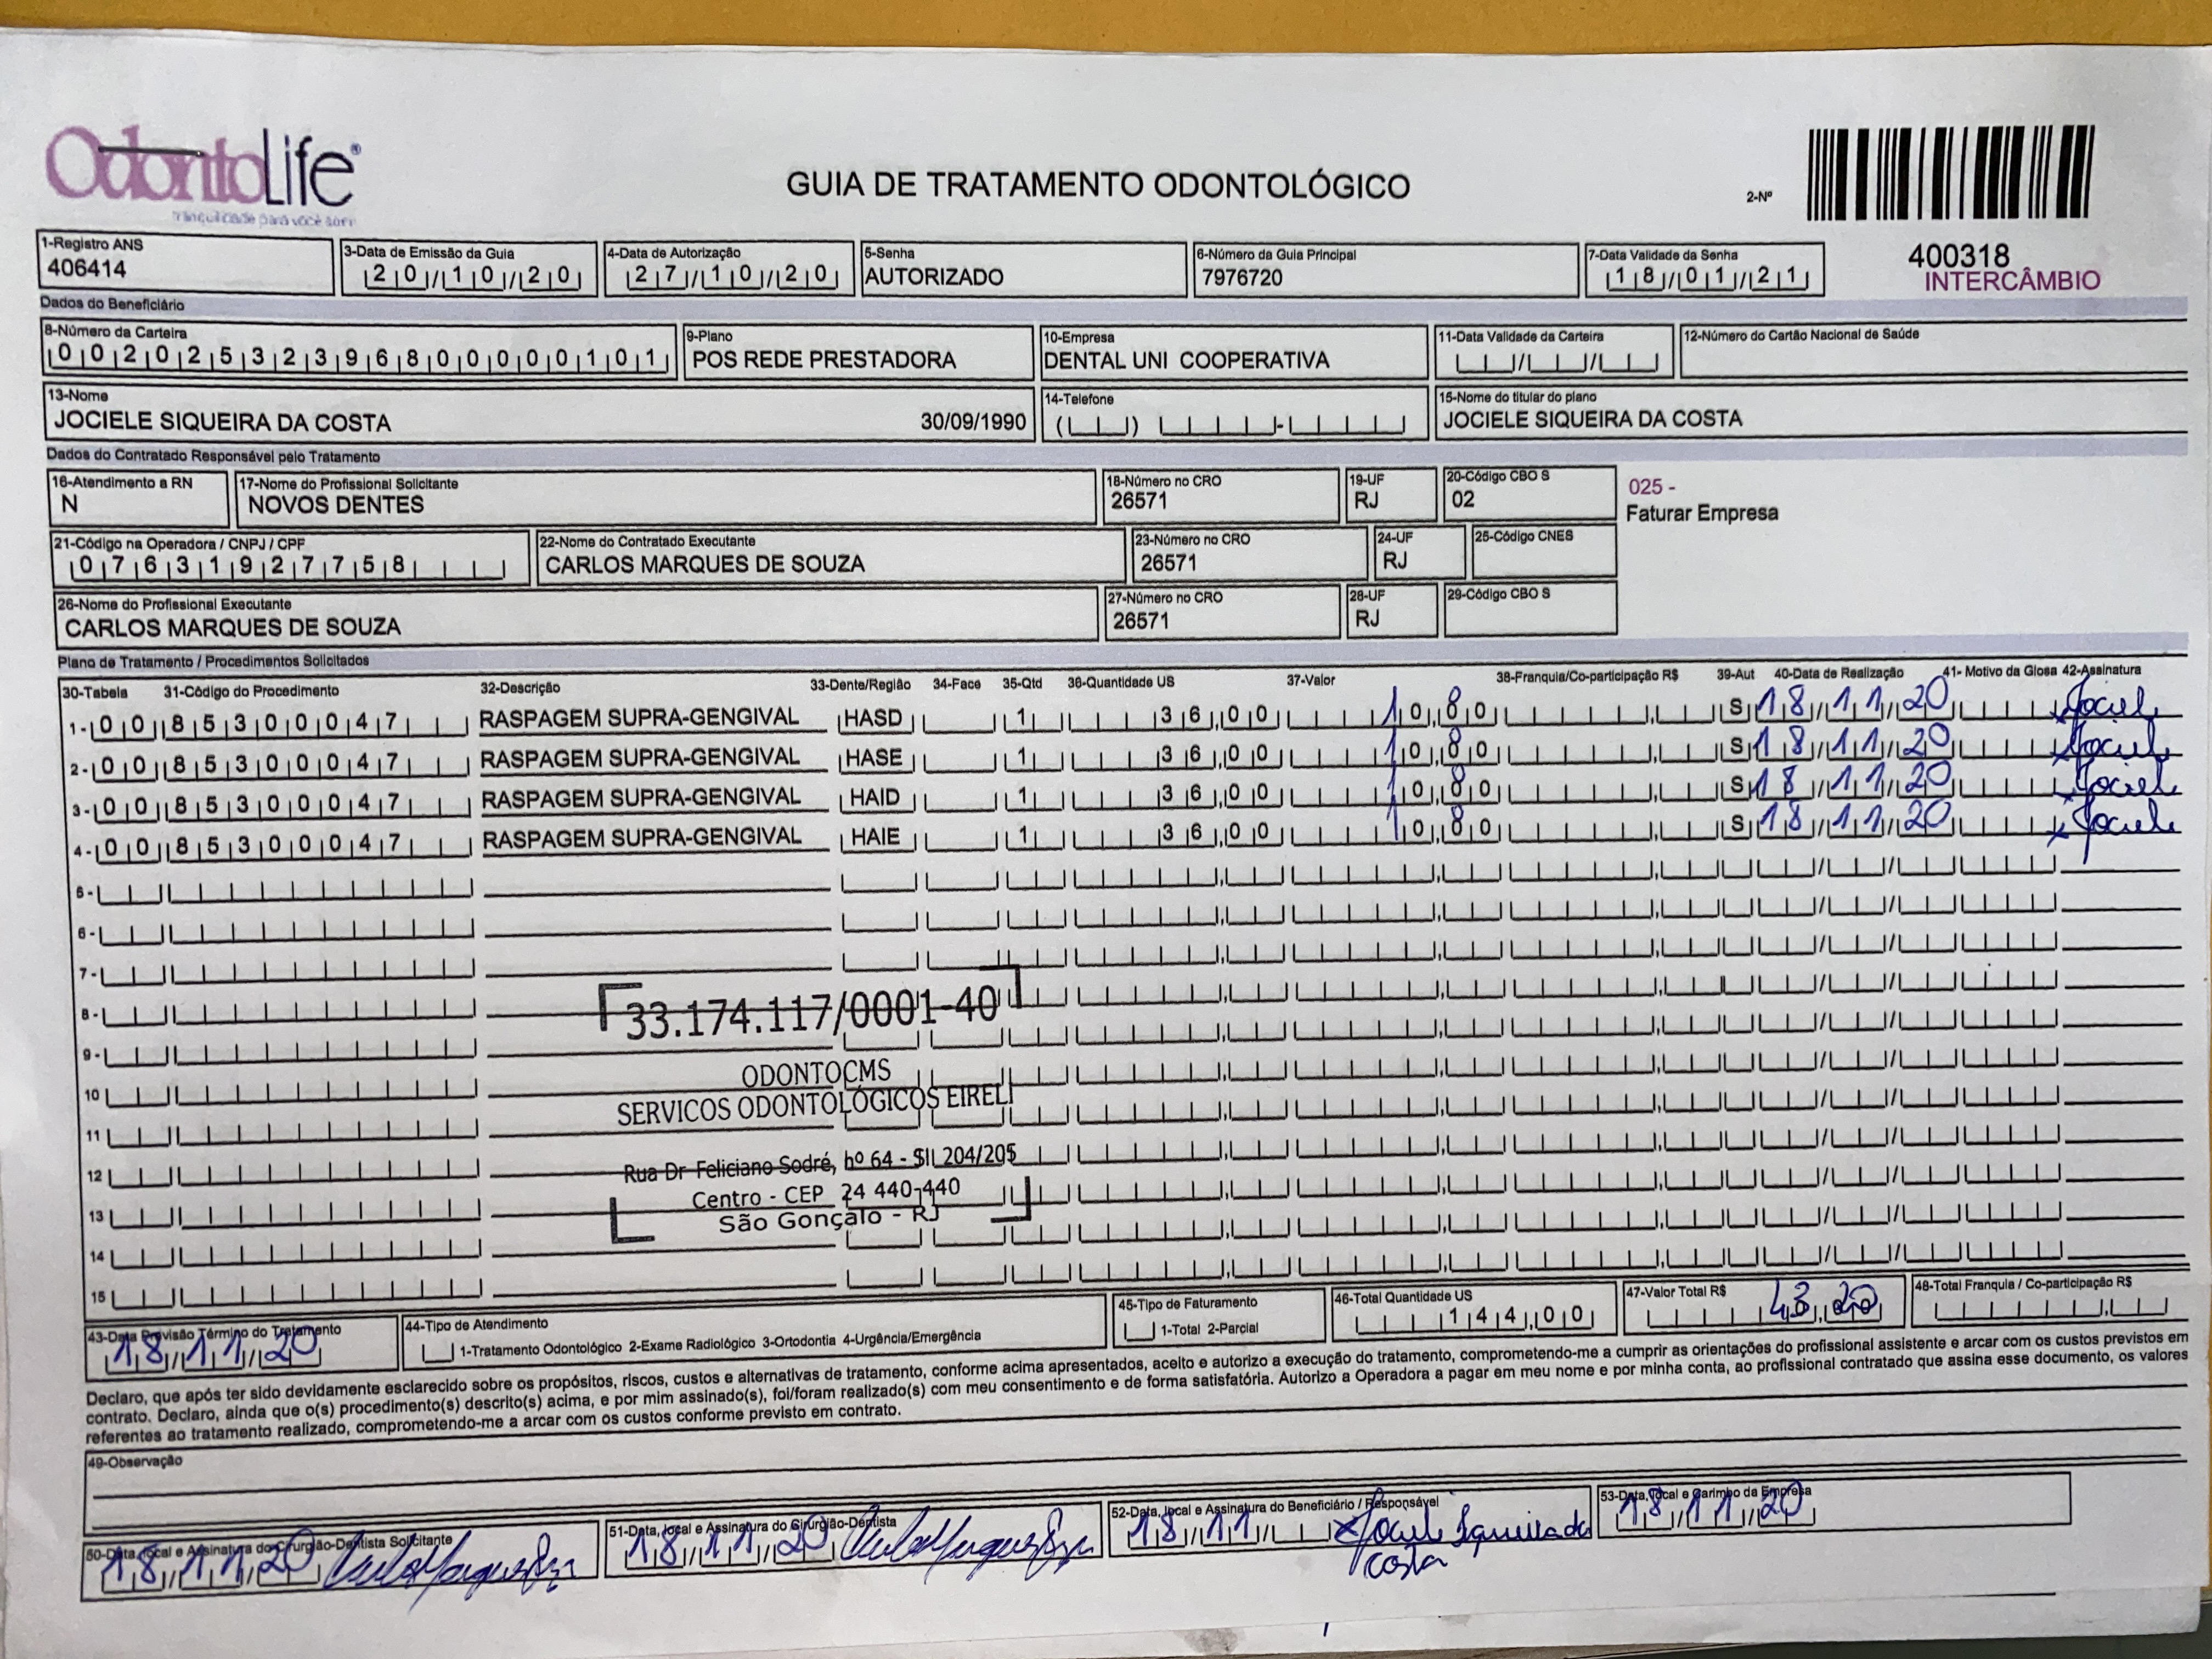 OdontoLife®
Tranquilidade para você sorrir
GUIA DE TRATAMENTO ODONTOLÓGICO
2-Nº
400318
INTERCÂMBIO
1-Registro ANS
406414
3-Data de Emissão da Guia
20/10/20
4-Data de Autorização
27/10/20
5-Senha
AUTORIZADO
6-Número da Guia Principal
7976720
7-Data Validade da Senha
18/01/21
Dados do Beneficiário
8-Número da Carteira
00202532396800000101
9-Plano
POS REDE PRESTADORA
10-Empresa
DENTAL UNI COOPERATIVA
11-Data Validade da Carteira
12-Número do Cartão Nacional de Saúde
13-Nome
JOCIELE SIQUEIRA DA COSTA 30/09/1990
14-Telefone
15-Nome do titular do plano
JOCIELE SIQUEIRA DA COSTA
Dados do Contratado Responsável pelo Tratamento
16-Atendimento a RN
N
17-Nome do Profissional Solicitante
NOVOS DENTES
18-Número no CRO
26571
19-UF
RJ
20-Código CBO S
02
025 -
Faturar Empresa
21-Código na Operadora / CNPJ / CPF
07631927758
22-Nome do Contratado Executante
CARLOS MARQUES DE SOUZA
23-Número no CRO
26571
24-UF
RJ
25-Código CNES
26-Nome do Profissional Executante
CARLOS MARQUES DE SOUZA
27-Número no CRO
26571
28-UF
RJ
29-Código CBO S
Plano de Tratamento / Procedimentos Solicitados
30-Tabela 31-Código do Procedimento 32-Descrição 33-Dente/Região 34-Face 35-Qtd 36-Quantidade US 37-Valor 38-Franquia/Co-participação R$ 39-Aut 40-Data de Realização 41- Motivo da Glosa 42-Assinatura
1- 00 85300047 RASPAGEM SUPRA-GENGIVAL HASD 1 36,00 10,80 S 18/11/20 Jociele
2- 00 85300047 RASPAGEM SUPRA-GENGIVAL HASE 1 36,00 10,80 S 18/11/20 Jociele
3- 00 85300047 RASPAGEM SUPRA-GENGIVAL HAID 1 36,00 10,80 S 18/11/20 Jociele
4- 00 85300047 RASPAGEM SUPRA-GENGIVAL HAIE 1 36,00 10,80 S 18/11/20 Jociele
5-
6-
7-
8-
9-
10
11
12
13
14
15
33.174.117/0001-40
ODONTOCMS
SERVICOS ODONTOLÓGICOS EIRELI
Rua Dr Feliciano Sodré, nº 64 - Sl 204/205
Centro - CEP 24 440-440
São Gonçalo - RJ
43-Data Previsão Término do Tratamento
18/11/20
44-Tipo de Atendimento
1-Tratamento Odontológico 2-Exame Radiológico 3-Ortodontia 4-Urgência/Emergência
45-Tipo de Faturamento
1-Total 2-Parcial
46-Total Quantidade US
144,00
47-Valor Total R$
43,20
48-Total Franquia / Co-participação R$
Declaro, que após ter sido devidamente esclarecido sobre os propósitos, riscos, custos e alternativas de tratamento, conforme acima apresentados, aceito e autorizo a execução do tratamento, comprometendo-me a cumprir as orientações do profissional assistente e arcar com os custos previstos em
contrato. Declaro, ainda que o(s) procedimento(s) descrito(s) acima, e por mim assinado(s), foi/foram realizado(s) com meu consentimento e de forma satisfatória. Autorizo a Operadora a pagar em meu nome e por minha conta, ao profissional contratado que assina esse documento, os valores
referentes ao tratamento realizado, comprometendo-me a arcar com os custos conforme previsto em contrato.
49-Observação
50-Data, local e Assinatura do Cirurgião-Dentista Solicitante
18/11/20
51-Data, local e Assinatura do Cirurgião-Dentista
18/11/20
52-Data, local e Assinatura do Beneficiário / Responsável
18/11/ Jociele Siqueira da
Costa
53-Data, local e Carimbo da Empresa
18/11/20